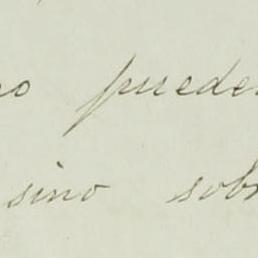 no pueden
sino sobr